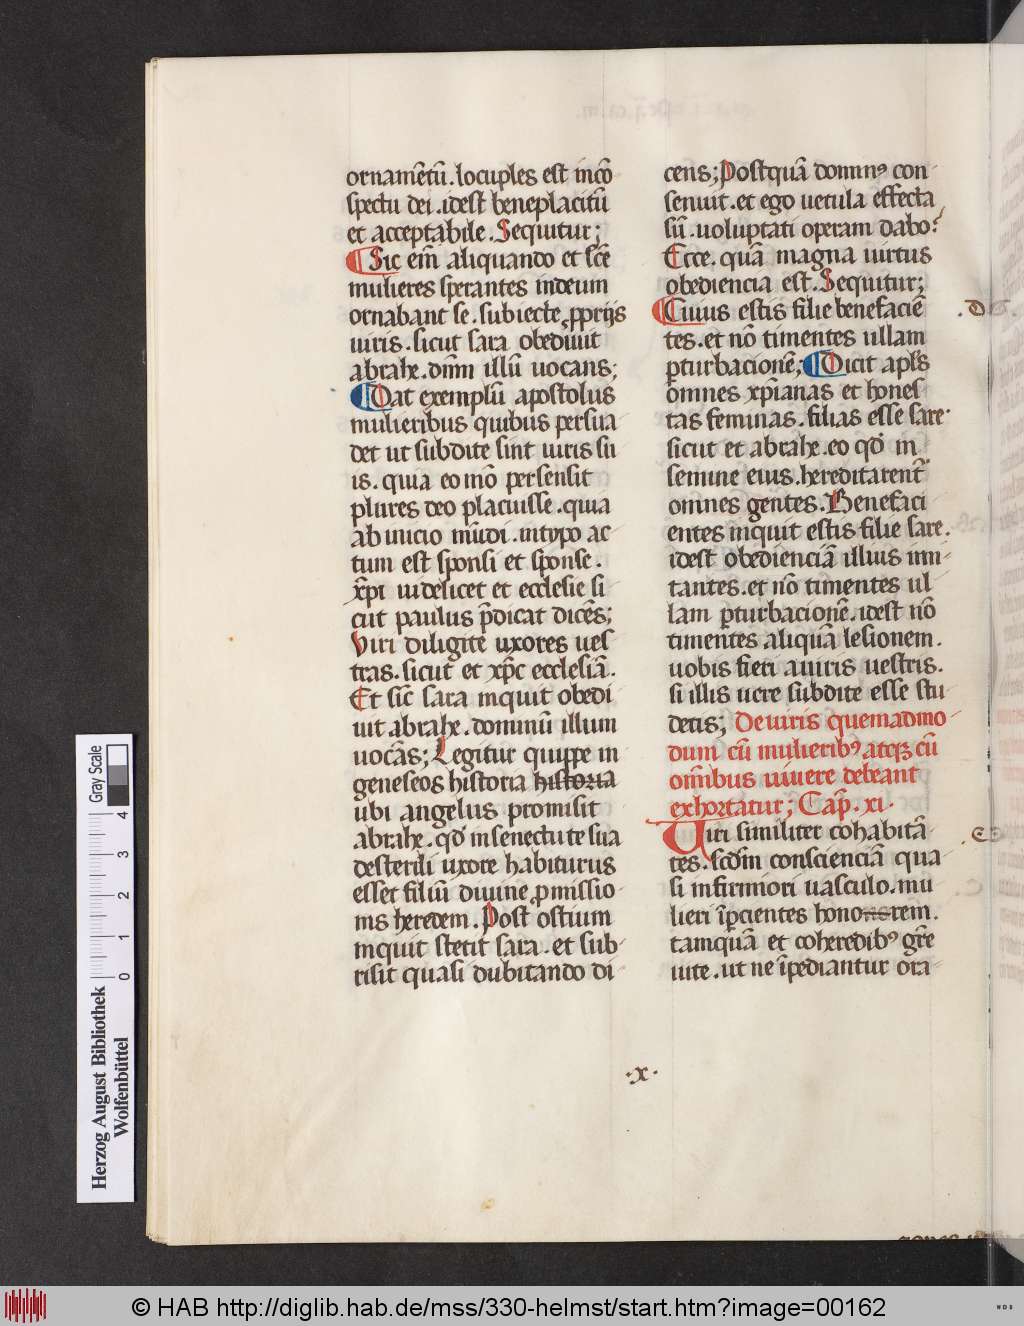 ornamētū. locuples est incō
spectu dei. idest beneplacitū
et acceptabile. Sequitur;
¶ Sic eīm aliquando et scē
mulieres sperantes indeum
ornabant se. subiecte ꝓprijs
uiris. sicut sara obediuit
abrahe. dnm̄ illū uocans;
¶ Dat exemplū apostolus
mulieribus quibus persua
det ut subdite sint uiris su
is. quia eo mō per sensit
plures deo placuisse. quia
ab inicio mūdi. in typo ac
tum est sponsi et sponse.
xp̄i uidelicet et ecclesie si
cut paulus p̄dicat dicēs;
Viri diligite uxores ues
tras. sicut et xp̄c ecclesiā.
Et sic̄ sara inquit obedi
uit abrahe. dominū illum
uocās; Legitur quippe in
geneseos historia historia
ubi angelus promisit
abrahe. qd̄ in senectu te sua
desterili uxore habiturus
esset filiū diuine ꝓmissio
nis heredem. Post ostium
inquit stetit sara. et sub-
risit quasi dubitando di
cens; Postquā dominꝰ con-
senuit. et ego uetula effecta
sū. uoluptati operam dabo?
Ecce. quā magna uirtus
obediencia est. Sequitur;
¶ Cuius estis filie benefaciē
tes. et nō timentes ullam
ꝑturbacionē; ¶ Dicit apl̄s
omnes xp̄ianas et hones
tas feminas. filias esse sare.
sicut et abrahe. eo qd̄ in
semine eius. hereditarent̄
omnes gentes. Benefaci
entes inquit estis filie sare.
idest obedienciā illius imi
tantes. et nō timentes ul
lam ꝑturbacionē. idest nō
timentes aliquā lesionem.
uobis fieri auiris uestris.
si illis uere subdite esse stu
detis; De uiris quemadmo-
dum cū mulieribꝰ atqꝫ cū
om̄ibus uiuere debeant
exhortatur; Cap̄. xi.
Uiri similiter cohabitā-
tes. scd̄m conscienciā qua-
si infirmiori uasculo. mu
lieri īp̄cientes honorem.
tamquā et coheredibꝰ grē
uite. ut ne īpediantur ora-
. D
. E
. x .
Herzog August Bibliothek
Wolfenbüttel
0 1 2 3 4
Gray Scale
© HAB http://diglib.hab.de/mss/330-helmst/start.htm?image=00162